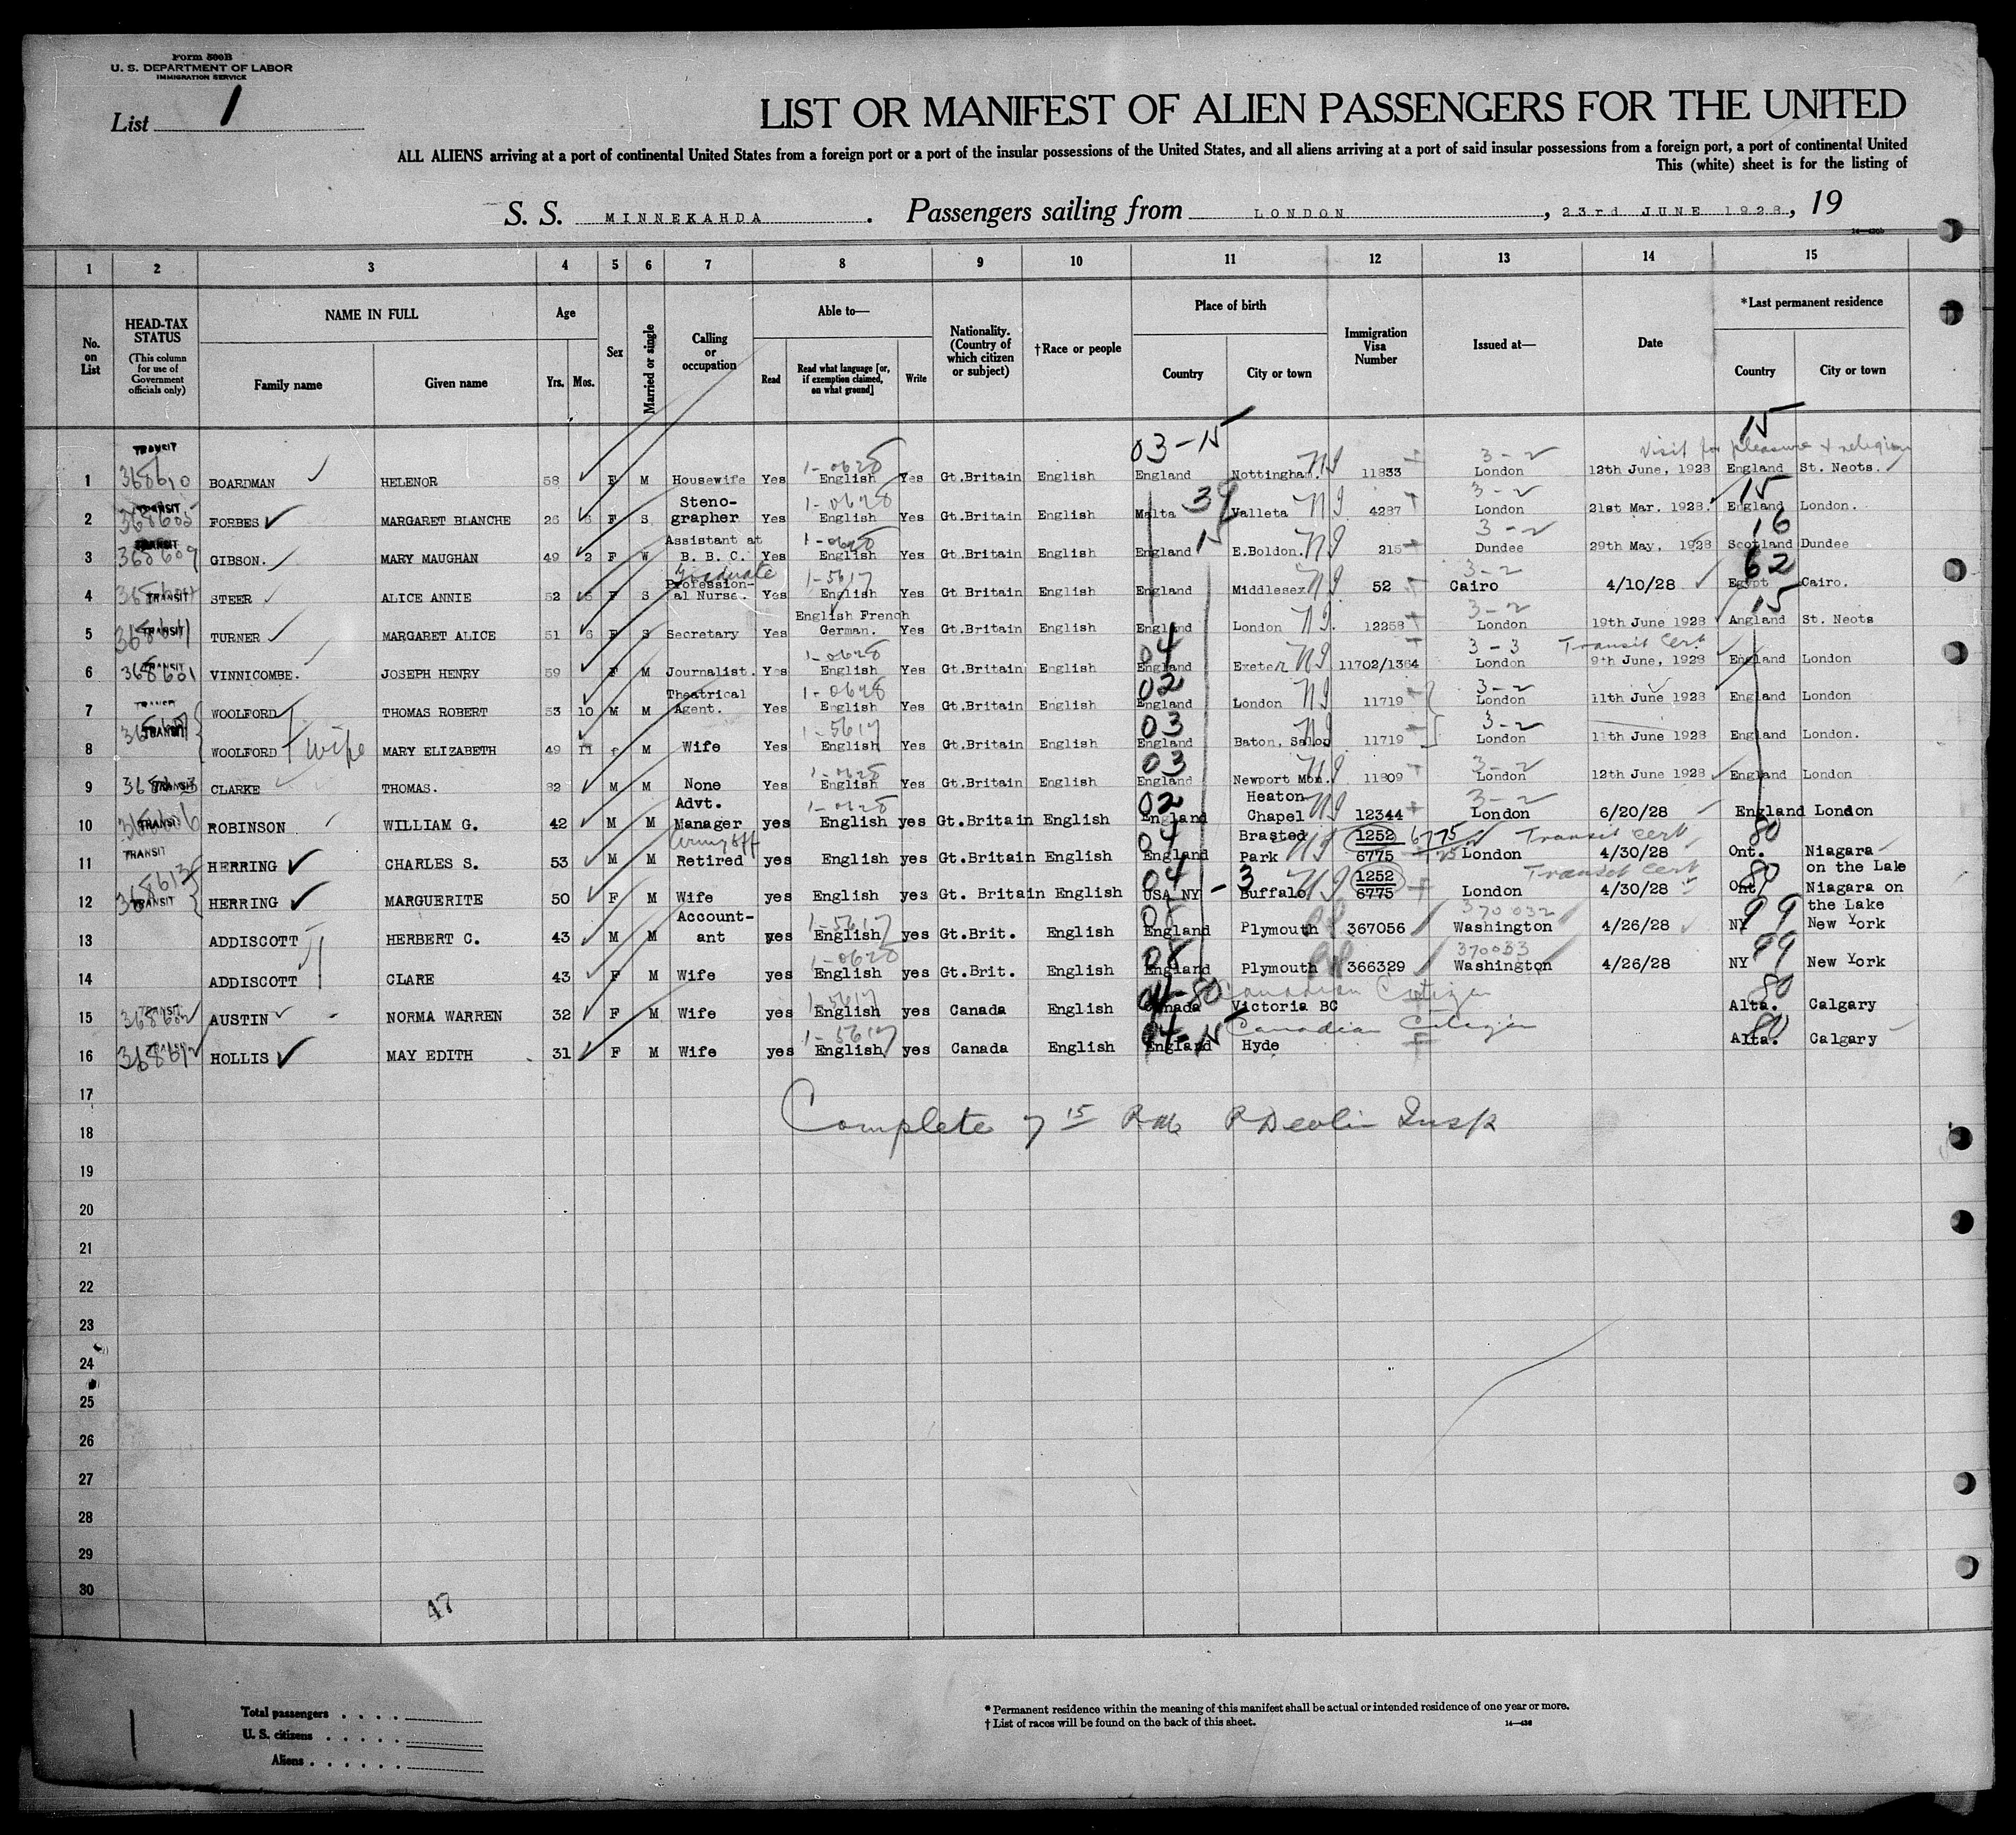 Form 500B
U. S. DEPARTMENT OF LABOR
IMMIGRATION SERVICE
List 1
LIST OR MANIFEST OF ALIEN PASSENGERS FOR THE UNITED
ALL ALIENS arriving at a port of continental United States from a foreign port or a port of the insular possessions of the United States, and all aliens arriving at a port of said insular possessions from a foreign port, a port of continental United
This (white) sheet is for the listing of
S. S. MINNEKAHDA. Passengers sailing from LONDON, 23rd JUNE 1928, 19
1 2 3 4 5 6 7 8 9 10 11 12 13 14 15
No. on List
HEAD-TAX STATUS (This column for use of Government officials only)
NAME IN FULL
Family name Given name
Age
Yrs. Mos.
Sex
Married or single
Calling or occupation
Able to—
Read Read what language [or, if exemption claimed, on what ground] Write
Nationality. (Country of which citizen or subject)
†Race or people
Place of birth
Country City or town
Immigration Visa Number
Issued at—
Date
*Last permanent residence
Country City or town
03-15 15
Visit for pleasure + religion
1 TRANSIT 368610 BOARDMAN HELENOR 58 F M Housewife Yes 1-0628 English Yes Gt.Britain English England Nottingham. NI 11833 3-2 London 12th June, 1928 England St. Neots.
2 TRANSIT 368605 FORBES MARGARET BLANCHE 26 6 F S Steno-grapher Yes 1-0628 English Yes Gt.Britain English Malta 39 Valleta NI 4287 3-2 London 21st Mar. 1928. 15 England London.
3 TRANSIT 368609 GIBSON. MARY MAUGHAN 49 2 F W Assistant at B. B. C. Yes 1-0628 English Yes Gt.Britain English England 15 E.Boldon. NI 215 3-2 Dundee 29th May, 1928 16 Scotland Dundee
4 TRANSIT STEER ALICE ANNIE 52 F S Graduate Profession-al Nurse. Yes 1-5617 English Yes Gt Britain English England Middlesex NI 52 3-2 Cairo 4/10/28 62 Egypt Cairo.
5 TRANSIT TURNER MARGARET ALICE 51 6 F S Secretary Yes English French German. Yes Gt.Britain English England London NI 12258 3-2 London 19th June 1928 15 Angland St. Neots
6 TRANSIT 368601 VINNICOMBE. JOSEPH HENRY 59 F M Journalist. Yes 1-0628 English Yes Gt.Britain English 04 England Exeter NI 11702/1364 3-3 London Transit Cert. 9th June, 1928 England London
7 TRANSIT WOOLFORD THOMAS ROBERT 53 10 M M Theatrical Agent. Yes 1-0628 English Yes Gt.Britain English 02 England London NI 11719 3-2 London 11th June 1928 England London
8 TRANSIT WOOLFORD wife MARY ELIZABETH 49 11 F M Wife Yes 1-5617 English Yes Gt.Britain English 03 England Baton, Salop NI 11719 3-2 London 11th June 1928 England London.
9 TRANSIT CLARKE THOMAS. M M None Yes 1-0628 English Yes Gt.Britain English 03 England Newport Mon. NI 11809 3-2 London 12th June 1928 England London
10 TRANSIT ROBINSON WILLIAM G. 42 M M Advt. Manager yes 1-0628 English yes Gt.Britain English 02 England Heaton Chapel NI 12344 3-2 London 6/20/28 England London
11 TRANSIT HERRING CHARLES S. 53 M M Army Off Retired yes English yes Gt.Britain English 04 England Brasted Park NI 1252 6775 6775 London Transit Cert 4/30/28 80 Ont. Niagara on the Lake
12 TRANSIT 368613 HERRING MARGUERITE 50 F M Wife yes English yes Gt. Britain English 04 USA NY - 3 Buffalo NI 1252 6775 London Transit Cert 4/30/28 80 Ont Niagara on the Lake
13 ADDISCOTT HERBERT C. 43 M M Account-ant yes 1-5617 English yes Gt.Brit. English 08 England Plymouth 367056 370032 Washington 4/26/28 99 NY New York
14 ADDISCOTT CLARE 43 F M Wife yes 1-0628 English yes Gt.Brit. English 08 England Plymouth 366329 370033 Washington 4/26/28 99 NY New York
15 TRANSIT 368602 AUSTIN NORMA WARREN 32 F M Wife yes 1-5617 English yes Canada English 04-80 Canada Victoria BC Canadian Citizen 80 Alta. Calgary
16 HOLLIS MAY EDITH 31 F M Wife yes 1-5617 English yes Canada English 04-15 England Hyde Canadian Citizen 80 Alta. Calgary
17
Complete 7 15 PM P Devlin Insp
18
19
20
21
22
23
24
25
26
27
28
29
30
47
Total passengers
U. S. citizens
Aliens
* Permanent residence within the meaning of this manifest shall be actual or intended residence of one year or more.
† List of races will be found on the back of this sheet.
14—436